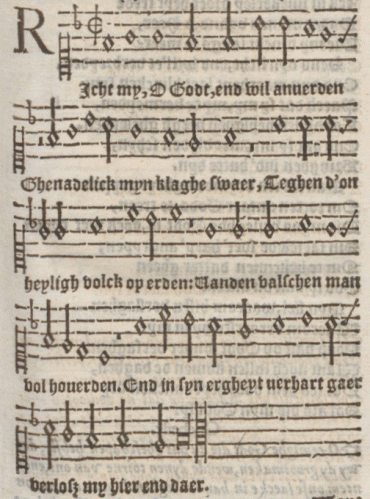 Richt my, O Godt, end wil anuerden
Ghenadelick myn klaghe swaer, Teghen d'on
heyligh volck op erden: Uanden valschen man
vol houerden. End in syn ergheyt uerhart gaer
verlosz my hier end daer.